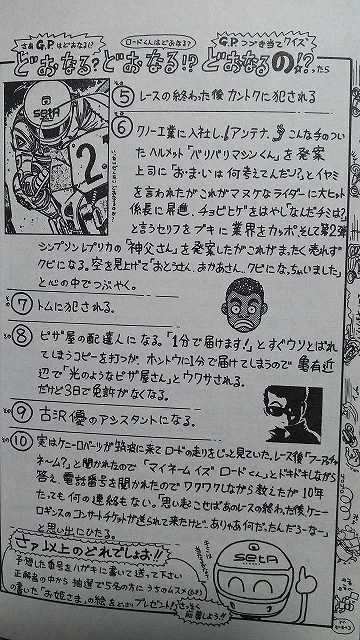 さあG.P.はどおなる!?
ロードくんはどおなる?
G.P.つづき当てクイズ
どおなる?どおなる!?どおなるの!?ったら
その⑤ レースの終わった後カントクに犯される
その⑥ クノー工業に入社し、「アンテナ、こんな手のついたヘルメット「バリバリマシンくん」を発案
上司に「おーまーいーは何考えてんだン?」とイヤミ
を言われたがこれがマヌケなライダーに大ヒット
係長に昇進、チョビヒゲをはやし「なんだチミは?」
と言うセリフをブキに業界をカッポ、そして第2弾
シンプソンレプリカの「神父さん」を発案したがこれがまったく売れず
クビになる。空を見上げて「おとうさん、おかあさん、クビになっちゃいました」
と心の中でつぶやく。
その⑦ トムに犯される。
その⑧ ピザ屋の配達人になる。「1分で届けます!」とすぐウソとばれ
てしまうコピーを打つが、ホントウに1分で届けてしまうので亀有近
辺で"光のようなピザ屋さん"とウワサされる。
だけど3日で免許がなくなる。
その⑨ 古沢優のアシスタントになる。
その⑩ 実はケニーロバーツが筑波に来てロードの走りをじっと見ていた。レース後「フーアッチャ
ネーム?」と聞かれたので「マイネームイズロードくん」とドキドキしながら
答え、電話番号を聞かれたのでワクワクしながら教えたが10年
たっても何の連絡もない。「思い起こせばあのレースの終わった後ケニー
ロギンスのコンサートチケットが送られて来たけど…ありゃあ何だったんだろーなー」
と思い出にひたる。
さァ以上のどれでしょお!!
予想した番号をハガキに書いて送って下さい
正解者の中から抽選で5名の方にうちのムスメ
の書いた「お姫さま」の絵をどおおプレゼント!!
SETA
SETA
2